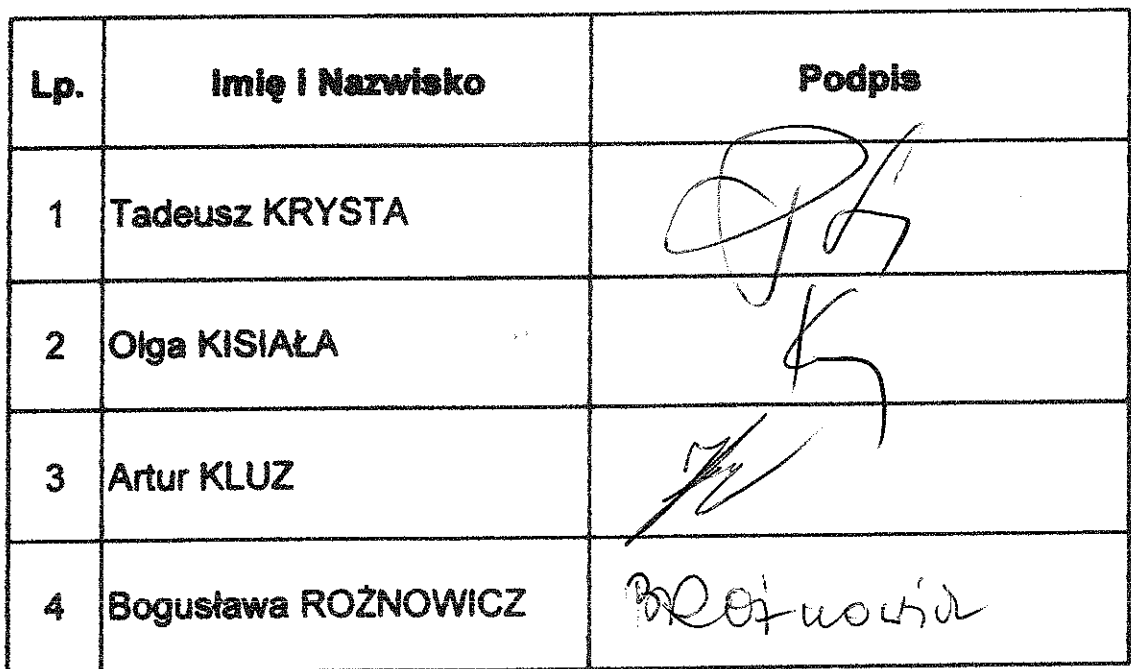 Lp. Imię i Nazwisko Podpis
1 Tadeusz KRYSTA
2 Olga KISIAŁA
3 Artur KLUZ
4 Bogusława ROŻNOWICZ BRożnowicz